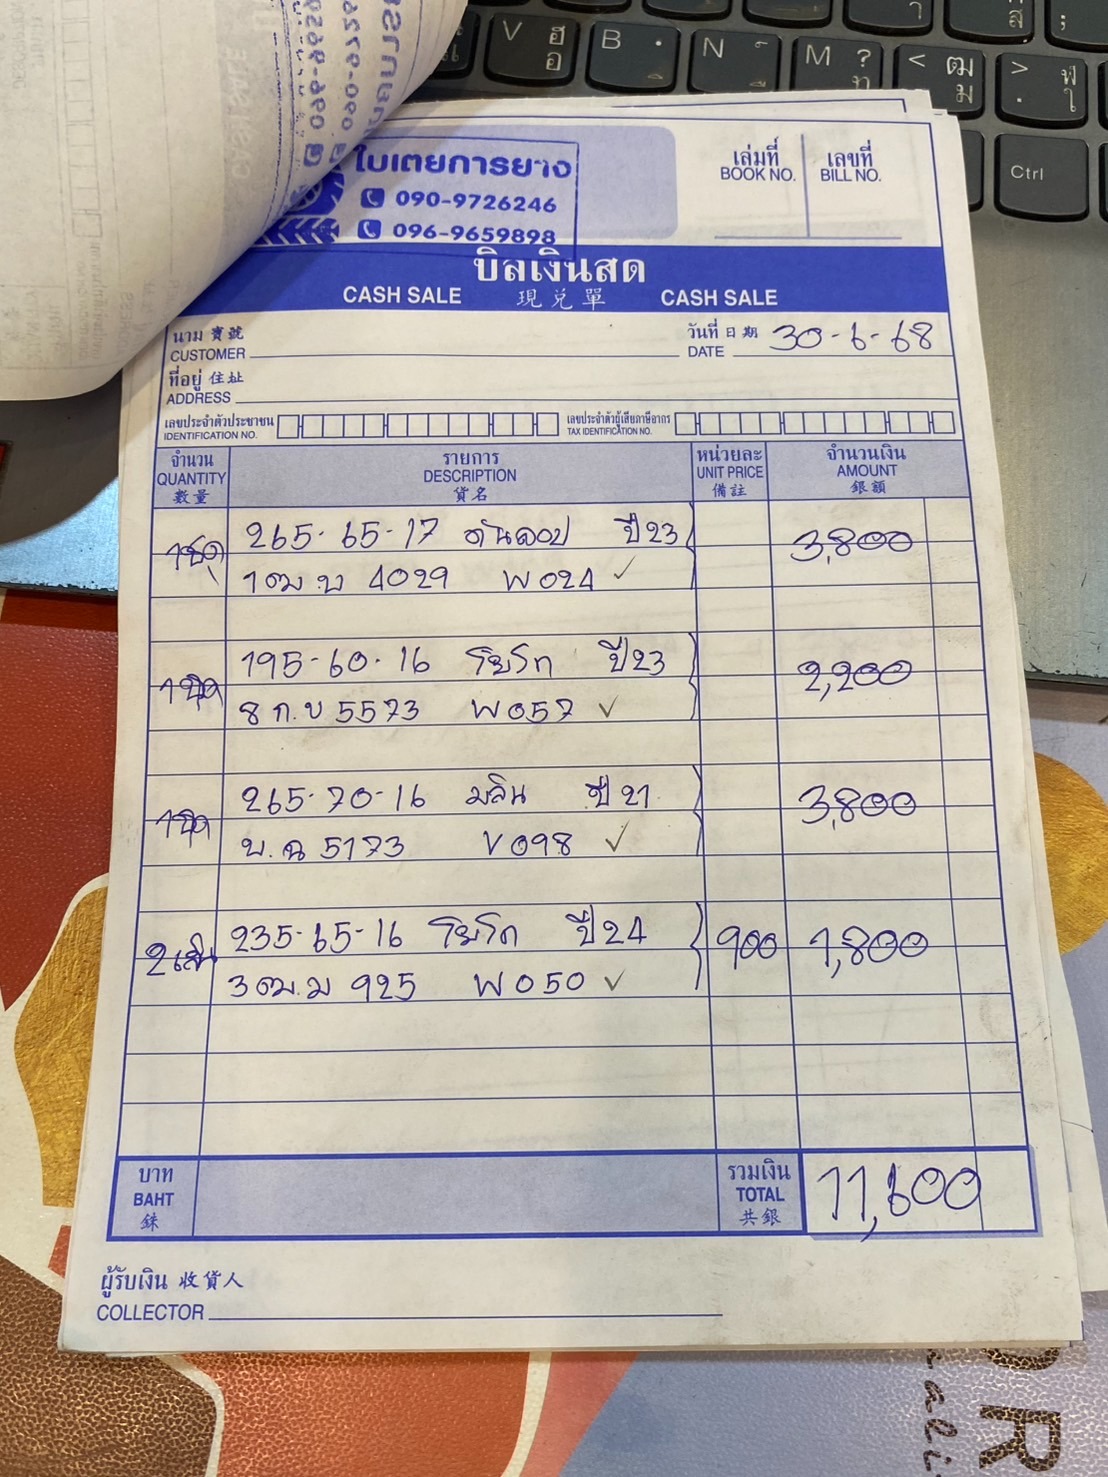 ใบเตยการยาง
090-9726246
096-9659898
เล่มที่ เลขที่
BOOK NO. BILL NO.
บิลเงินสด
CASH SALE 現兌單 CASH SALE
นาม 寶號 วันที่ 日期 30-6-68
CUSTOMER DATE
ที่อยู่ 住址
ADDRESS
เลขประจำตัวประชาชน เลขประจำตัวผู้เสียภาษีอากร
IDENTIFICATION NO. TAX IDENTIFICATION NO.
จำนวน รายการ หน่วยละ จำนวนเงิน
QUANTITY DESCRIPTION UNIT PRICE AMOUNT
數量 貨名 備註 銀額
1ชุด 265-65-17 ดันลอป ปี23 3,800
1ฒบ 4029 W024 ✓
1ชุด 195-60-16 โยโก ปี23 2,200
8 ก.ข 5573 W057 ✓
1ชุด 265-70-16 มลิน ปี 21 3,800
บ.ฉ 5173 V098 ✓
2เส้น 235-65-16 โยโก ปี24 900 1,800
3ฒ.ม 925 W050 ✓
บาท รวมเงิน
BAHT TOTAL 11,600
銖 共銀
ผู้รับเงิน 收貨人
COLLECTOR
V ฮ อ
B
N
M ? ท
< ฒ ม
> ฬ ใ
Ctrl